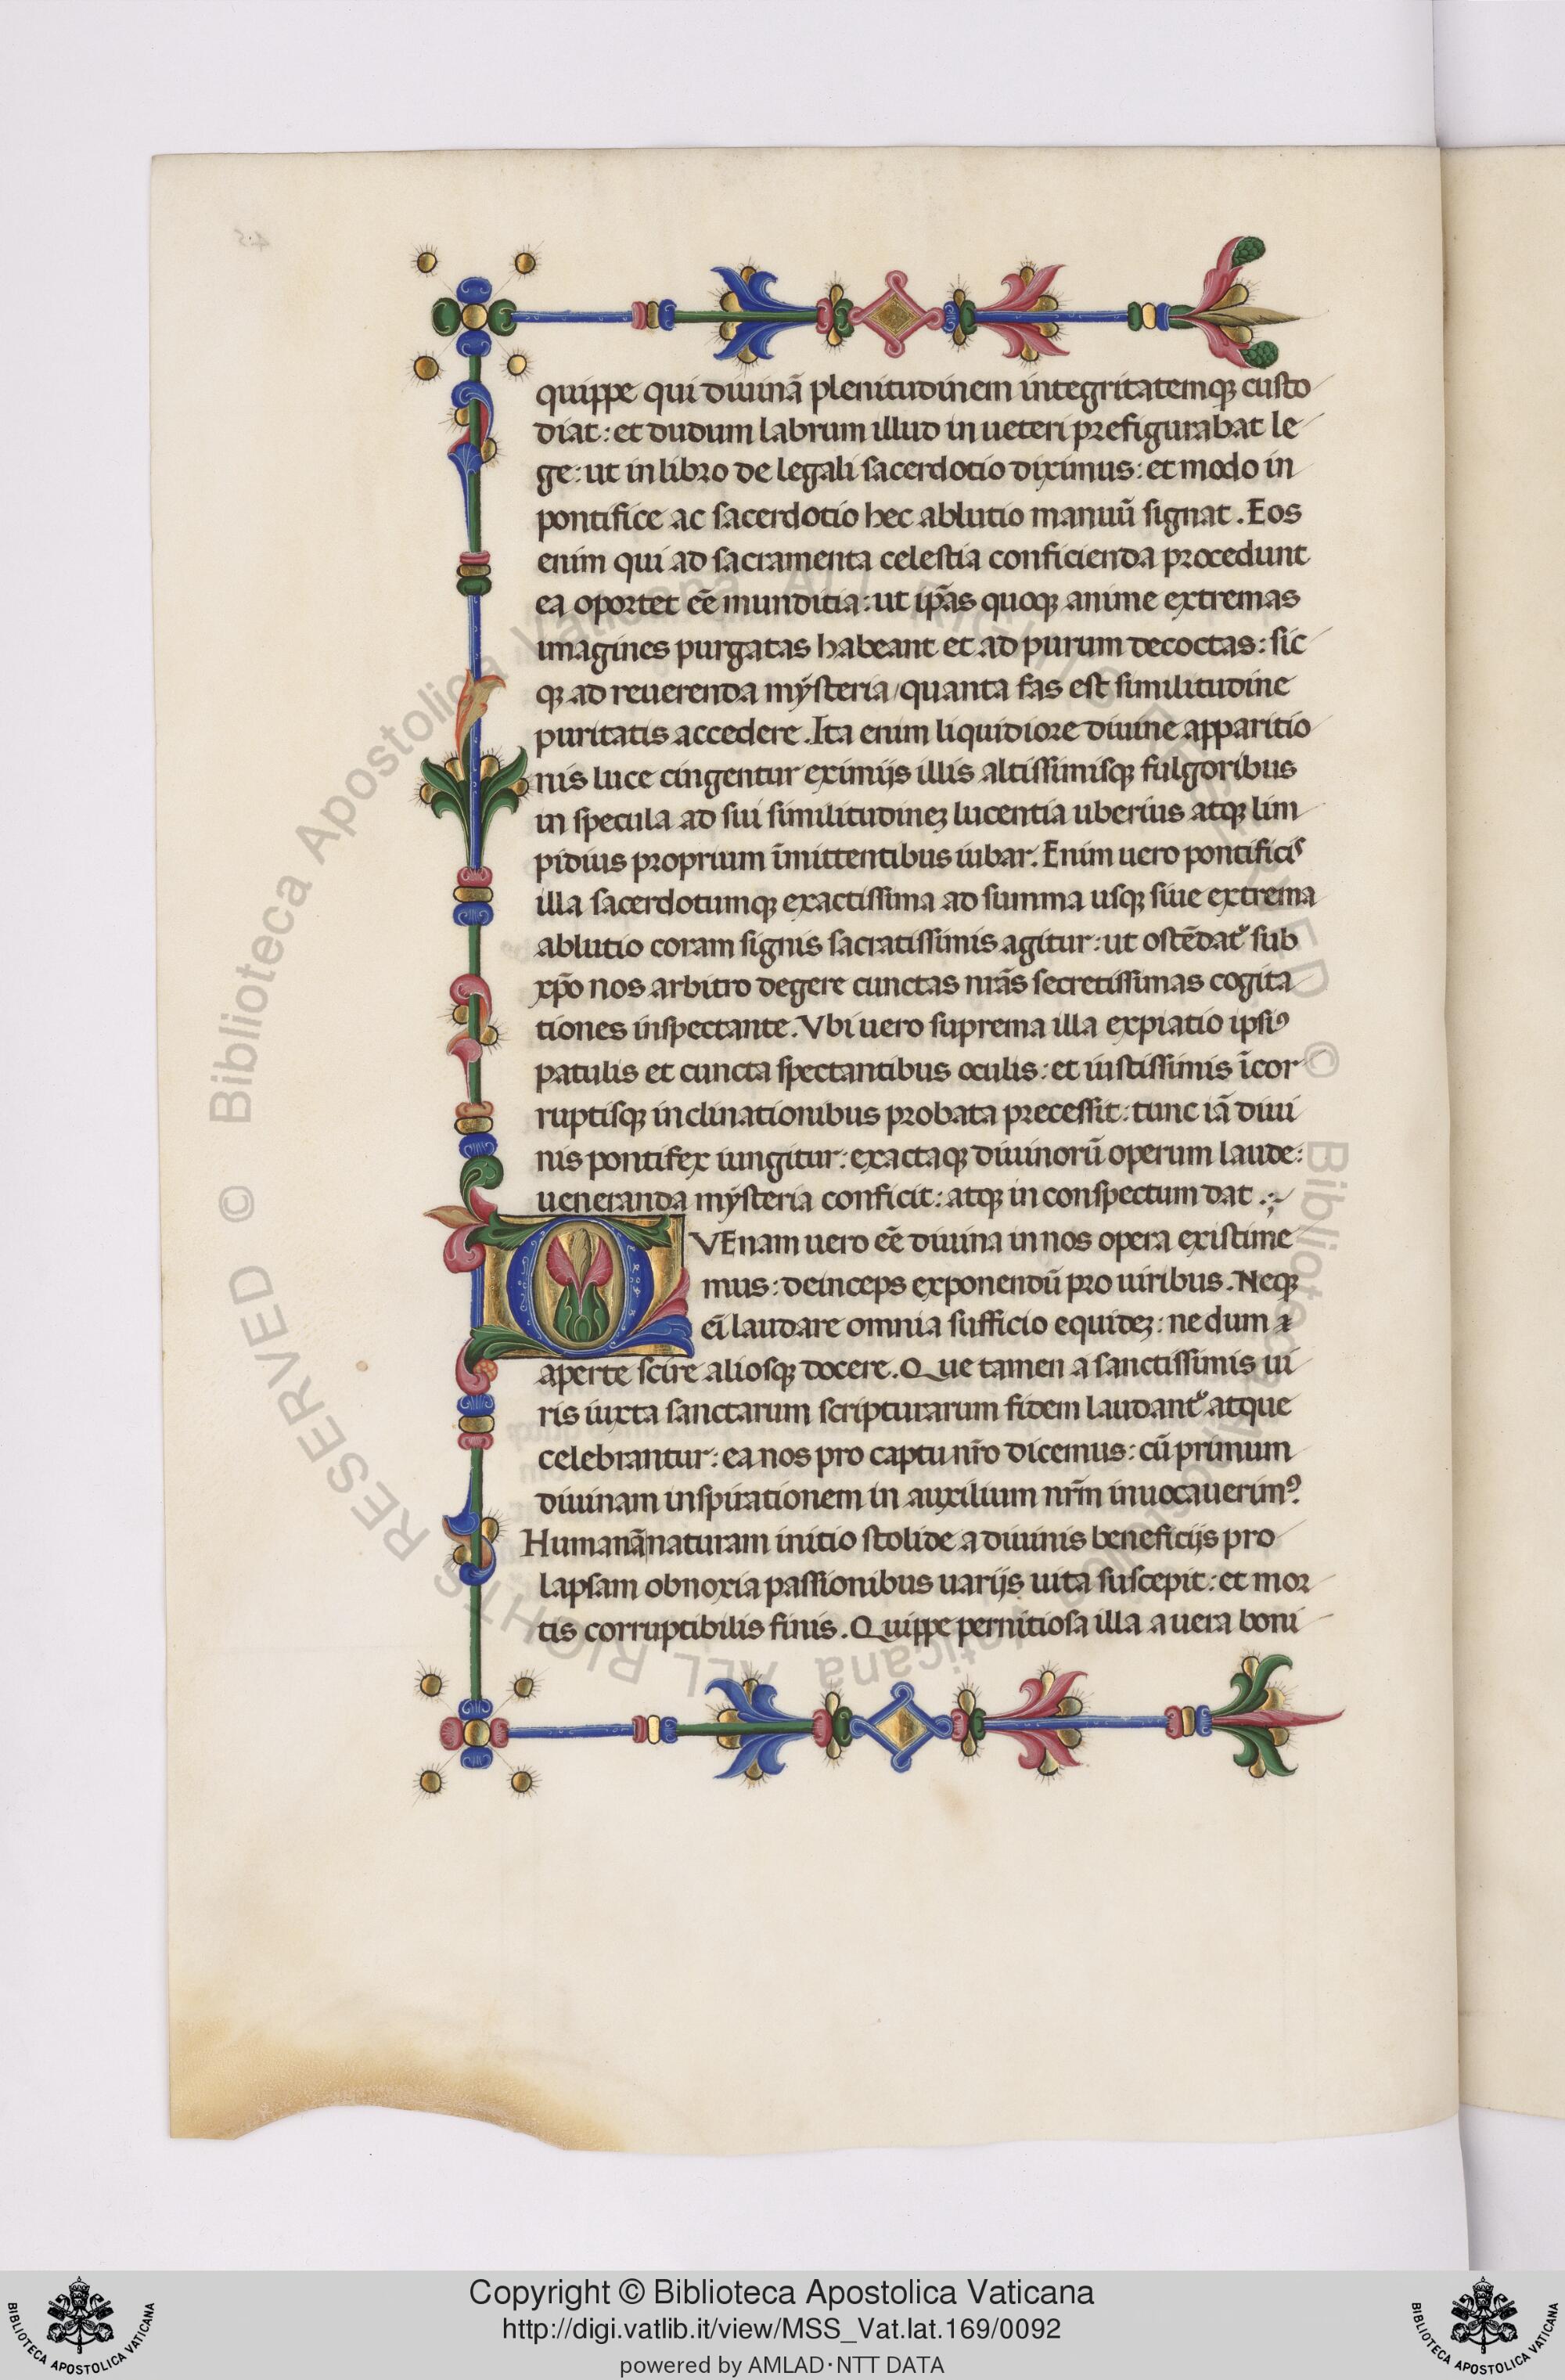 quippe qui diuinā plenitudinem integritatemqꝫ custo
diat: et dudum labrum illud in ueteri prefigurabat le
ge: ut in libro de legali sacerdotio diximus: et modo in
pontifice ac sacerdotio hec ablutio manuū signat. Eos
enim qui ad sacramenta celestia conficienda procedunt
ea oportet eē munditia: ut ip̄as quoqꝫ anime extremas
imagines purgatas habeant et ad purum decoctas: sic
qꝫ ad reuerenda mẏsteria/quanta fas est similitudine
puritatis accedere. Ita enim liquidiore diuine apparitio
nis luce cingentur eximijs illis altissimisqꝫ fulgoribus
in specula ad sui similitudineꝫ lucentia uberius atqꝫ lim
pidius proprium īmittentibus iubar. Enim uero pontificis
illa sacerdotumqꝫ exactissima ad summa usqꝫ siue extrema
ablutio coram signis sacratissimis agitur: ut ostēdat᷑ sub
xp̄o nos arbitro degere cunctas nr̄as secretissimas cogita
tiones inspectante. Vbi uero suprema illa expiatio ipsiꝰ
patulis et cuncta spectantibus oculis: et iustissimis īcor
ruptisqꝫ inclinationibus probata precessit: tunc iā diui
nis pontifex iungitur: exactaqꝫ diuinorū operum laude:
ueneranda mẏsteria conficit: atqꝫ in conspectum dat.
QVEnam uero eē diuina in nos opera existime
mus: deinceps exponendū pro uiribus. Neqꝫ
eī laudare omnia sufficio equideꝫ: nedum
aperte scire aliosqꝫ docere. Que tamen a sanctissimis ui
ris iuxta sanctarum scripturarum fidem laudant᷑ atque
celebrantur: ea nos pro captu nr̄o dicemus: cū primum
diuinam inspirationem in auxilium nr̄m inuocauerimꝰ.
Humanā naturam initio stolide a diuinis beneficijs pro
lapsam obnoxia passionibus uarijs uita suscepit: et mor
tis corruptibilis finis. Quippe pernitiosa illa a uera boni
© Biblioteca Apostolica Vaticana ALL RIGHTS RESERVED © Biblioteca Apostolica Vaticana ALL RIGHTS RESERVED
Copyright © Biblioteca Apostolica Vaticana
http://digi.vatlib.it/view/MSS_Vat.lat.169/0092
powered by AMLAD·NTT DATA
BIBLIOTECA APOSTOLICA VATICANA
BIBLIOTECA APOSTOLICA VATICANA